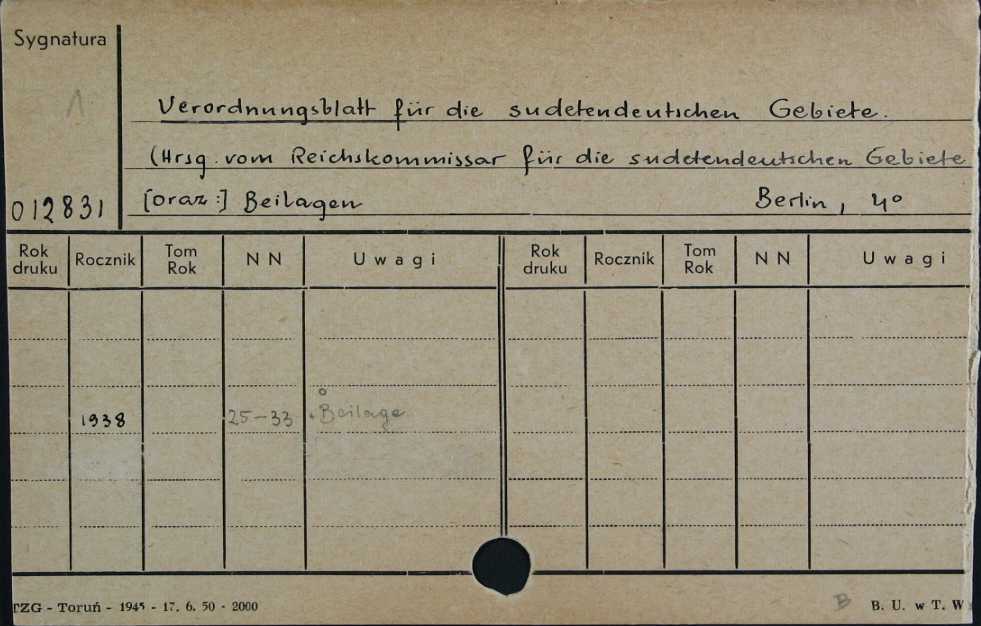 Sygnatura
1
Verordnungsblatt für die sudetendeutschen Gebiete.
(Hrsg. vom Reichskommissar für die sudetendeutschen Gebiete
012831 [oraz:] Beilagen Berlin, 4°
Rok druku Rocznik Tom Rok NN Uwagi Rok druku Rocznik Tom Rok NN Uwagi
1938 25-33 Beilage
TZG - Toruń - 1945 - 17. 6. 50 - 2000 B B. U. w T. W